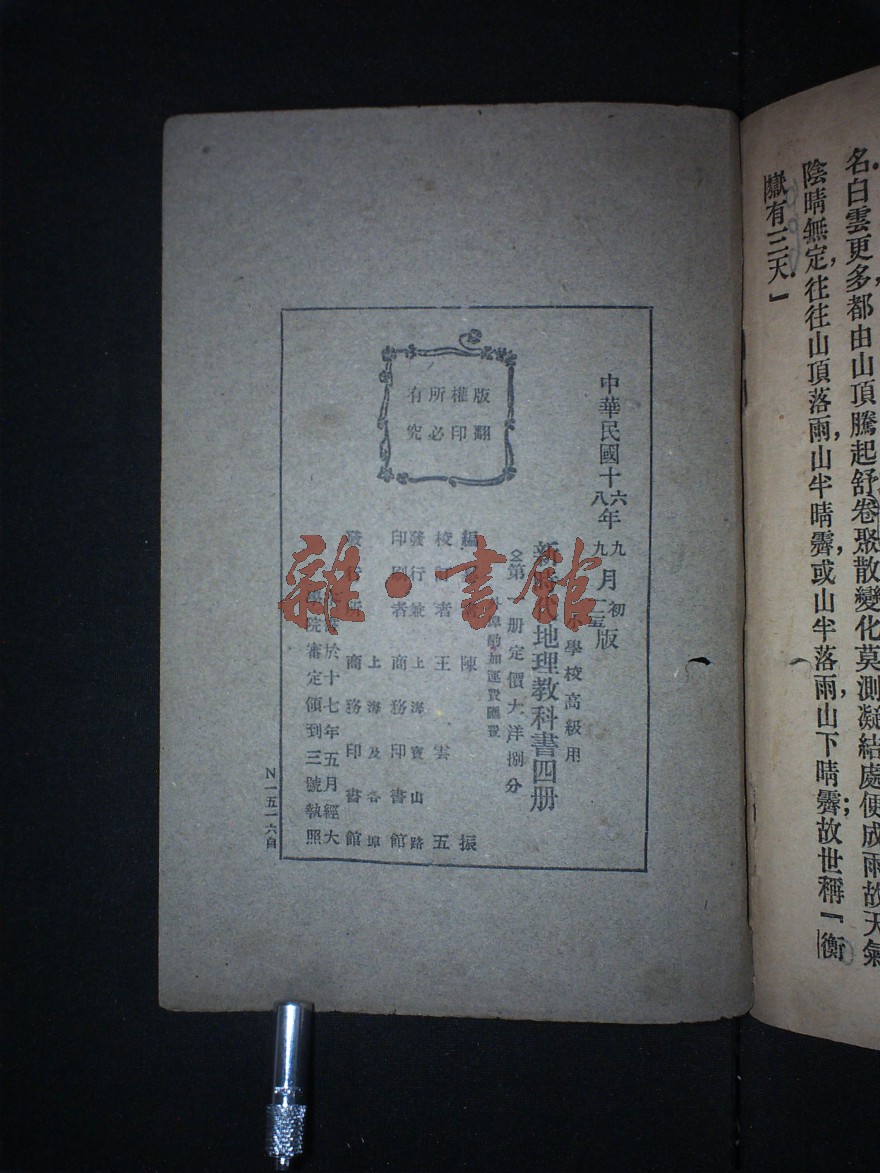 名．白雲更多，都由山頂騰起，舒卷聚散，變化莫測，凝結處便成雨；故天氣
陰晴無定，往往山頂落雨，山半晴霽，或山半落雨，山下晴霽，故世稱「衡
嶽有三天．」
中華民國十六年九月初版
十八年九月一百版
小學校高級用
新時代地理教科書四册
第一册定價大洋捌分
外埠酌加運費匯費
版權所有
翻印必究
陳 振
校 者 王 雲 五
發行兼 上海寶山路
印刷者 商務印書館
發行所 上海及各埠
商務印書館
於十七年五月經大
學院審定領到三號執照
N一五一六自
雜·書館